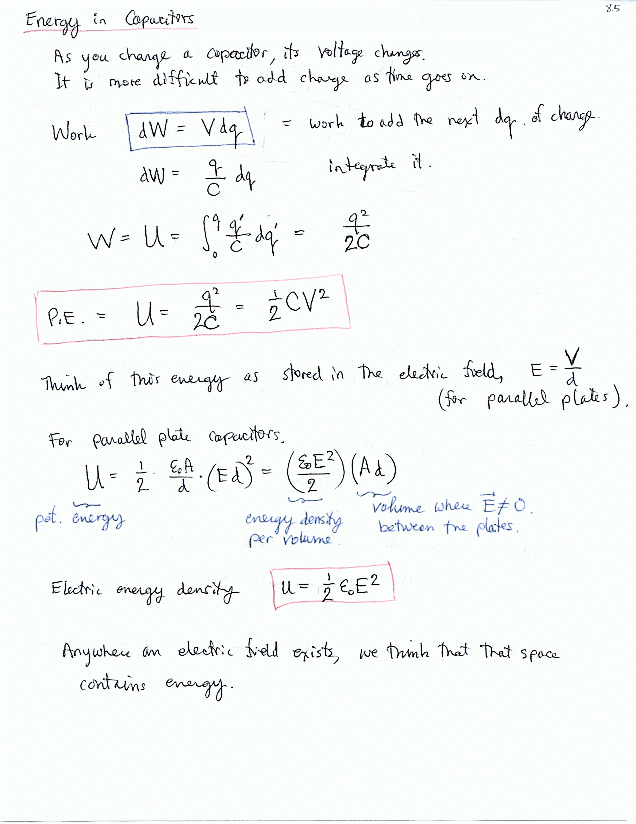 85
Energy in Capacitors
As you charge a capacitor, its voltage changes.
It is more difficult to add charge as time goes on.
Work dW = Vdq = work to add the next dq. of charge.
dW = q/C dq integrate it.
W = U = ∫₀^q q'/C dq' = q²/2C
P.E. = U = q²/2C = ½CV²
Think of this energy as stored in the electric field, E = V/d
(for parallel plates).
For parallel plate capacitors.
U = ½ · ε₀A/d · (Ed)² = (ε₀E²/2)(Ad)
pot. energy energy density per volume. volume where E⃗ ≠ 0. between the plates.
Electric energy density u = ½ ε₀E²
Anywhere an electric field exists, we think that that space
contains energy.